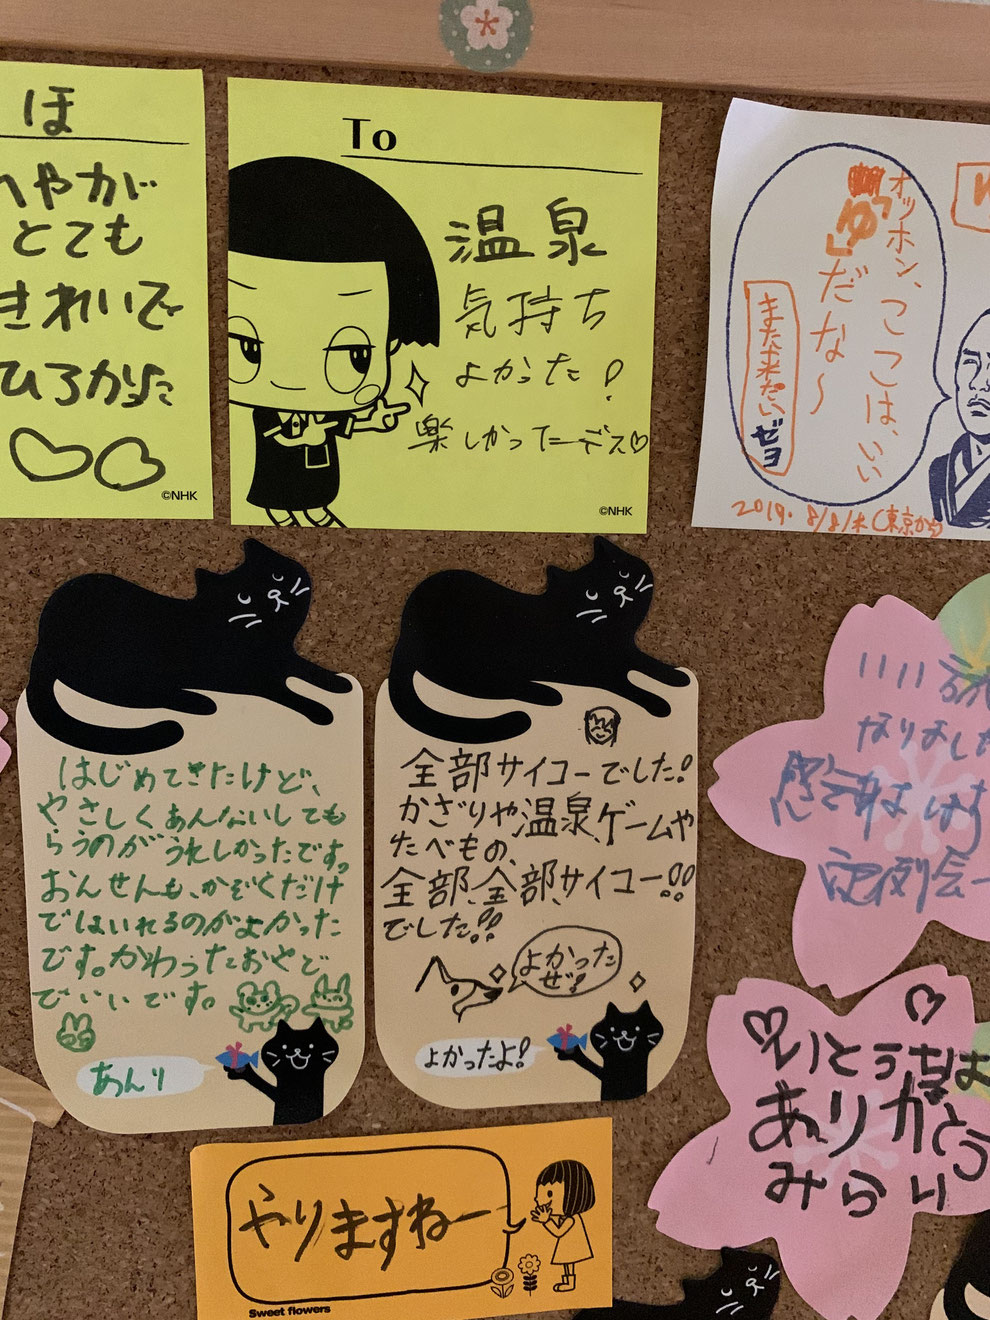 ほ
へやが
とても
きれいで
ひろかった
©NHK
To
温泉
気持ち
よかった!
楽しかったデス♡
©NHK
オッホン、ここは、いい
「ゆ」だな〜
また来たいゼヨ
2019. 8/8/木(東京から
はじめてきたけど、
やさしくあんないしても
らうのがうれしかったです。
おんせんも、かぞくだけ
ではいれるのがよかった
です。かわったおやど
でいいです。
あんり
全部サイコーでした!
かざりや温泉、ゲームや
たべもの、
全部、全部、サイコー!!
でした!!
よかった
ぜ?
よかったよ!
いい
なりました
感謝
定例会
ありがとう
みらい
やりますねー
Sweet flowers